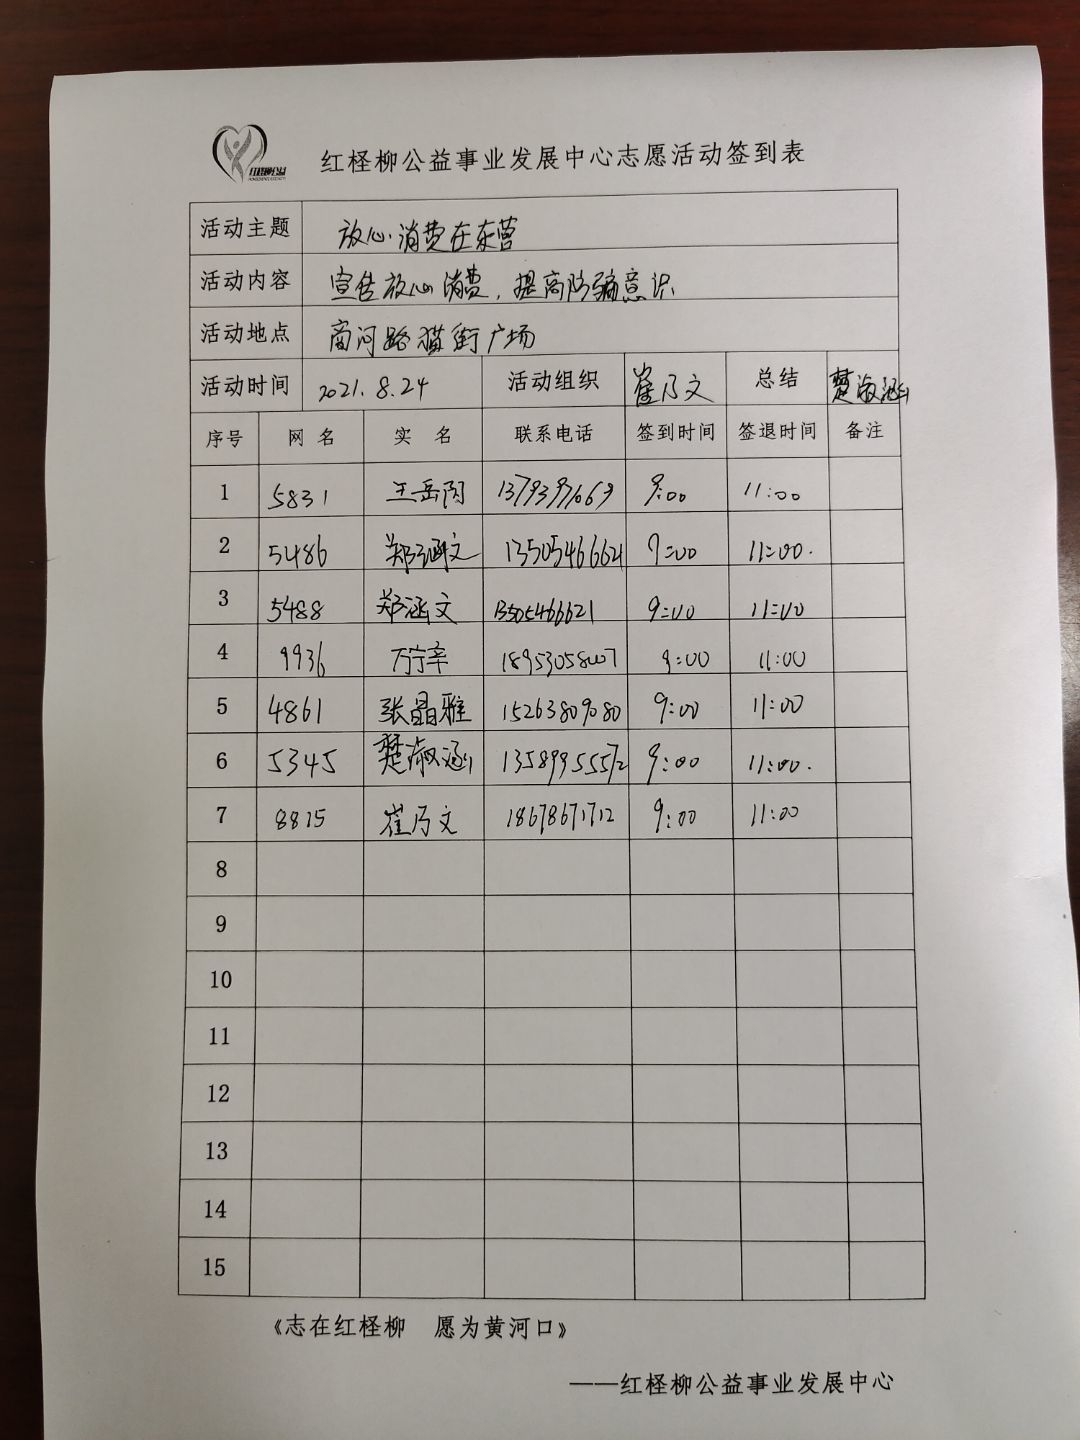 红柽柳公益事业发展中心志愿活动签到表
活动主题 放心消费在东营
活动内容 宣传放心消费,提高防骗意识
活动地点 商河路猫街广场
活动时间 2021.8.24 活动组织 崔乃文 总结 楚淑涵
序号 网名 实名 联系电话 签到时间 签退时间 备注
1 5831 王岳 9:00 11:00
2 5486 郑涵文 13505466621 9:00 11:00.
3 5488 郑涵文 13505466621 9:00 11:00
4 9936 万宁辛 9:00 11:00
5 4861 张晶雅 15263809080 9:00 11:00
6 5345 楚淑涵 13589955572 9:00 11:00.
7 8815 崔乃文 18678671712 9:00 11:00
8
9
10
11
12
13
14
15
《志在红柽柳 愿为黄河口》
——红柽柳公益事业发展中心